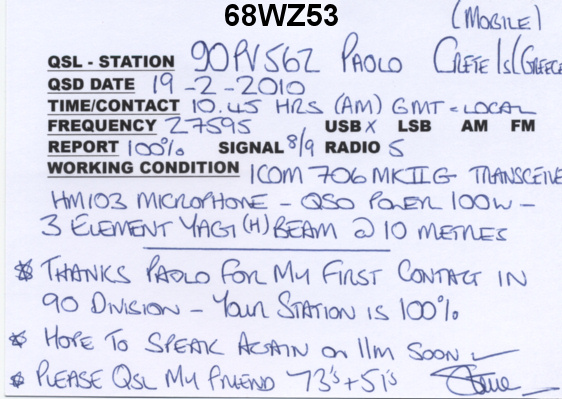 68WZ53
(MOBILE)
QSL - STATION 90PV562 PAOLO CRETE IS (GREECE
QSD DATE 19-2-2010
TIME/CONTACT 10.45 HRS (AM) GMT = LOCAL
FREQUENCY 27595 USB X LSB AM FM
REPORT 100% SIGNAL 8/9 RADIO 5
WORKING CONDITION ICOM 706 MKIIG TRANSCEIVE
HM103 MICROPHONE - QSO POWER 100W -
3 ELEMENT YAGI (H) BEAM @ 10 METRES
* THANKS PAOLO FOR MY FIRST CONTACT IN
90 DIVISION - YOUR STATION IS 100%
* HOPE TO SPEAK AGAIN on 11m SOON ✓
* PLEASE QSL MY FRIEND 73's + 51's Steve